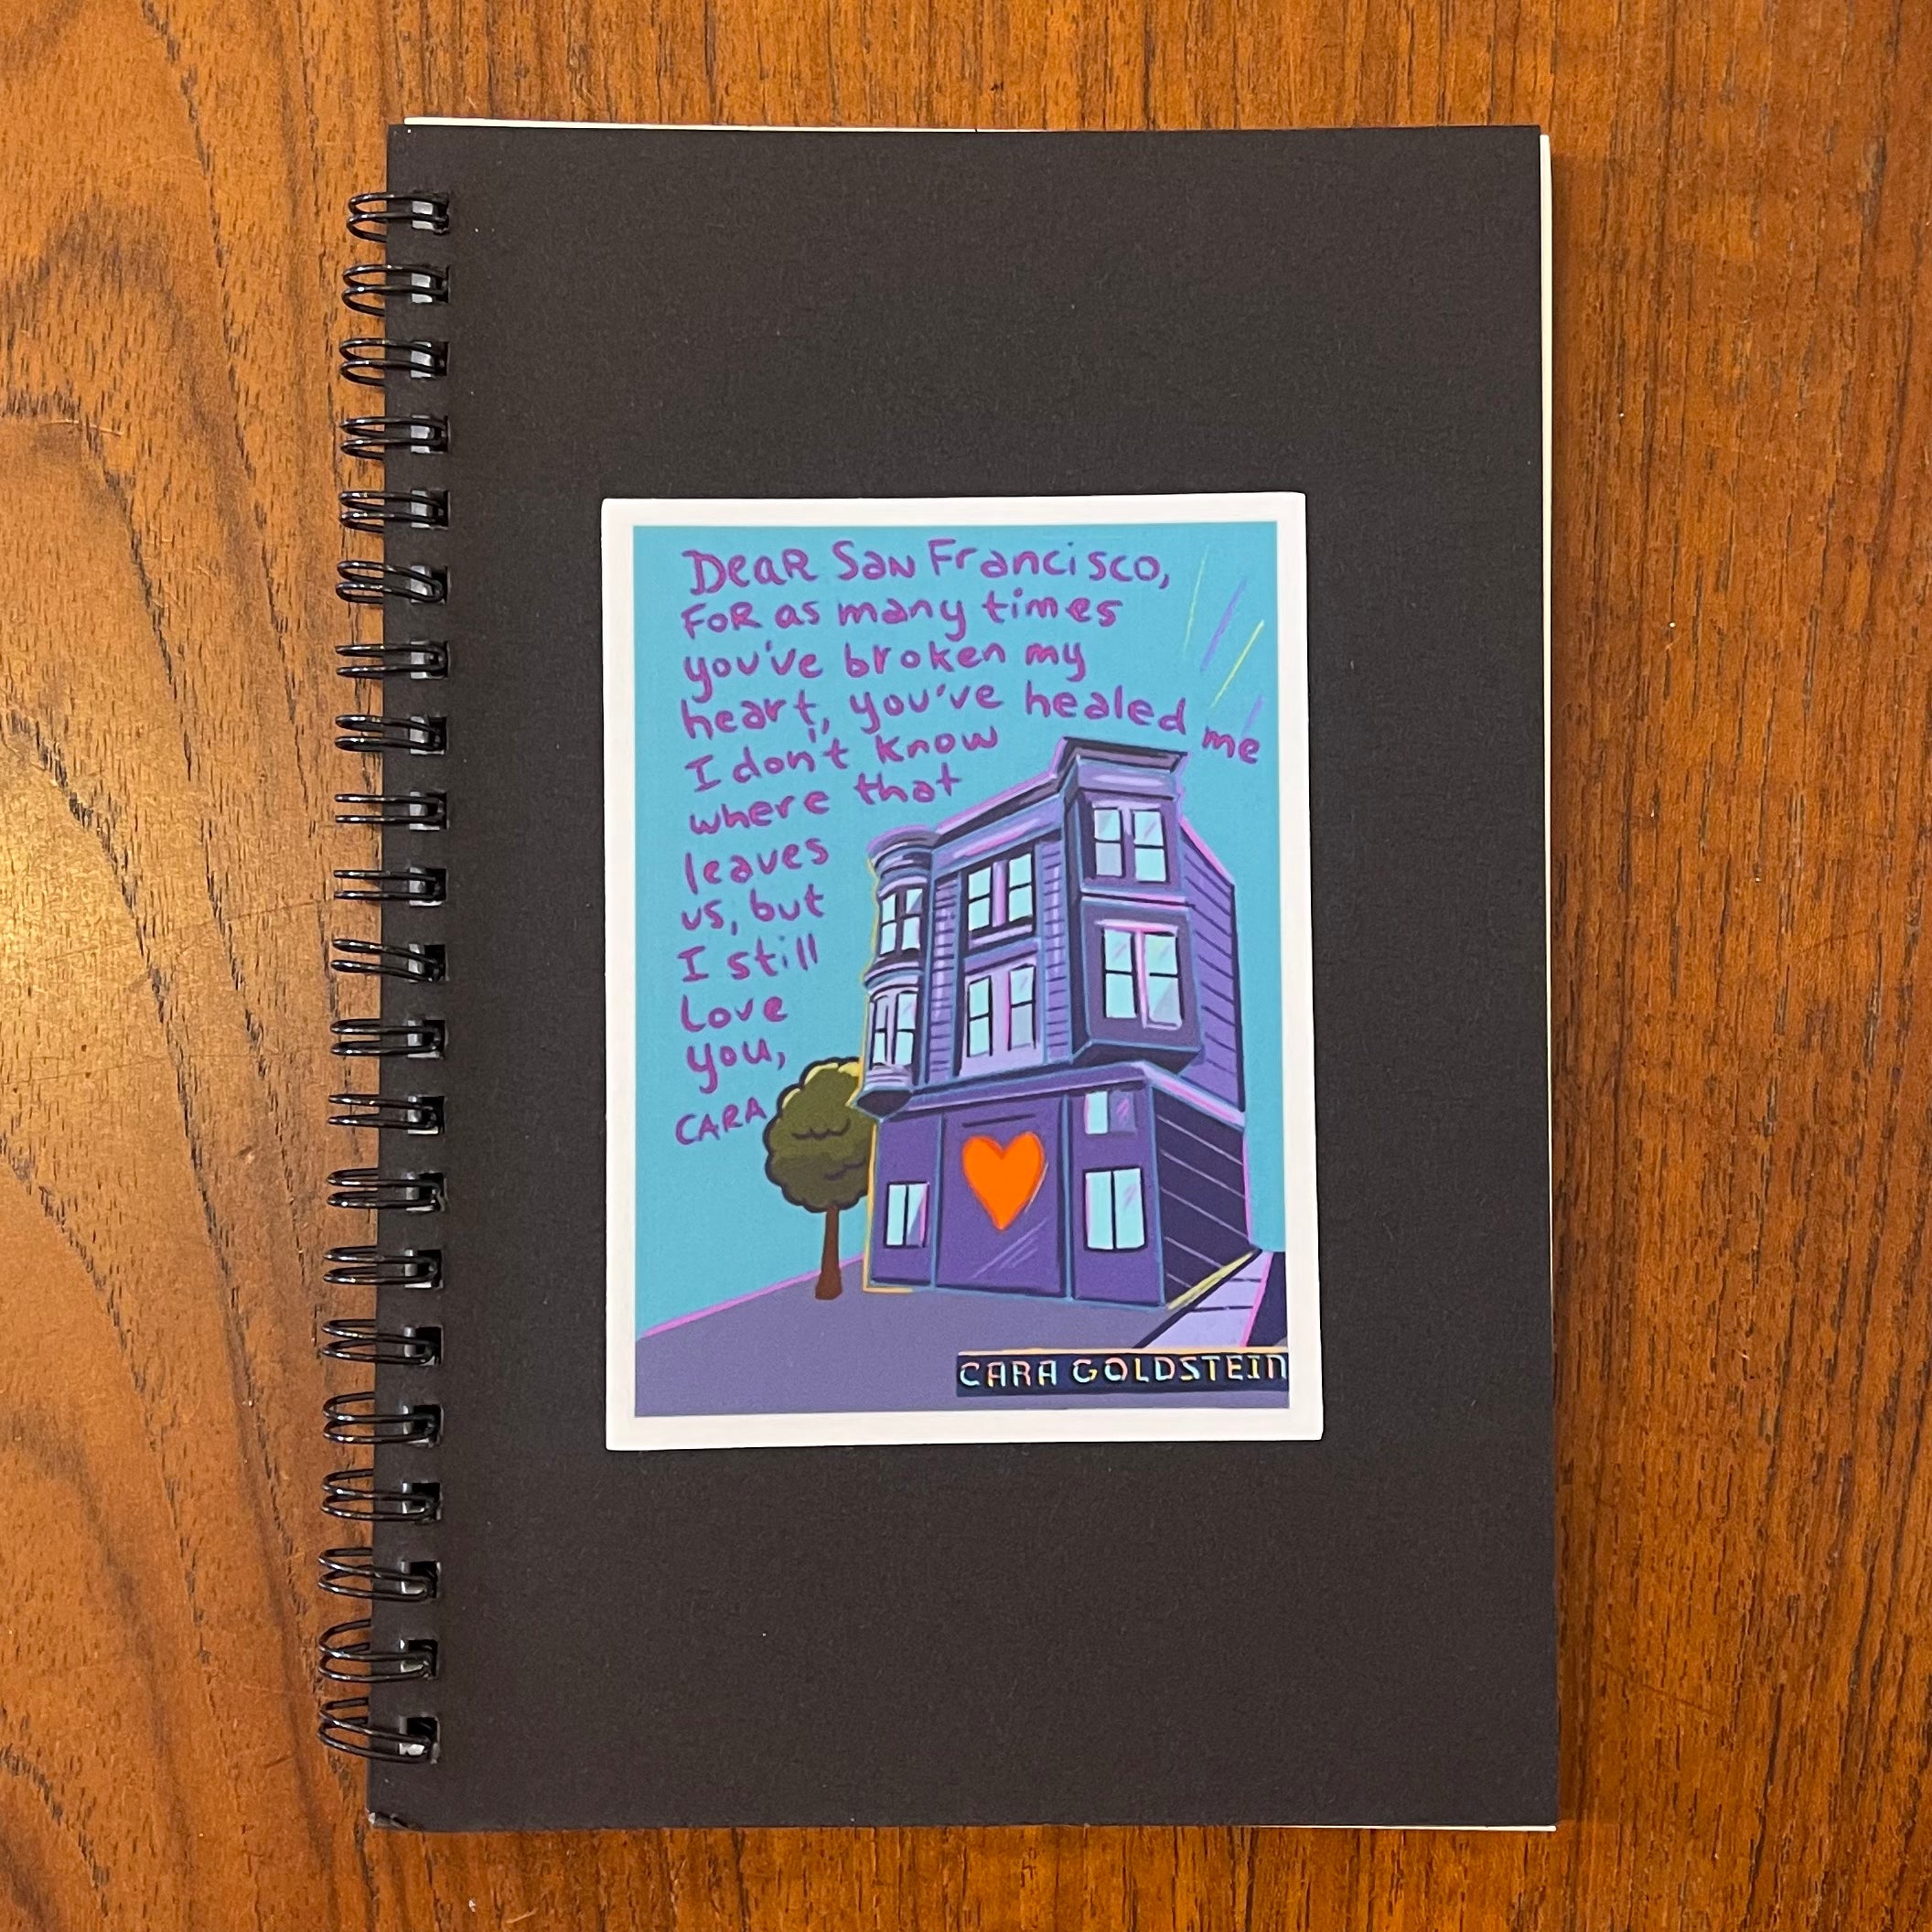 Dear San Francisco,
For as many times
you've broken my
heart, you've healed me
I don't know
where that
leaves
us, but
I still
Love
you,
CARA
CARA GOLDSTEIN